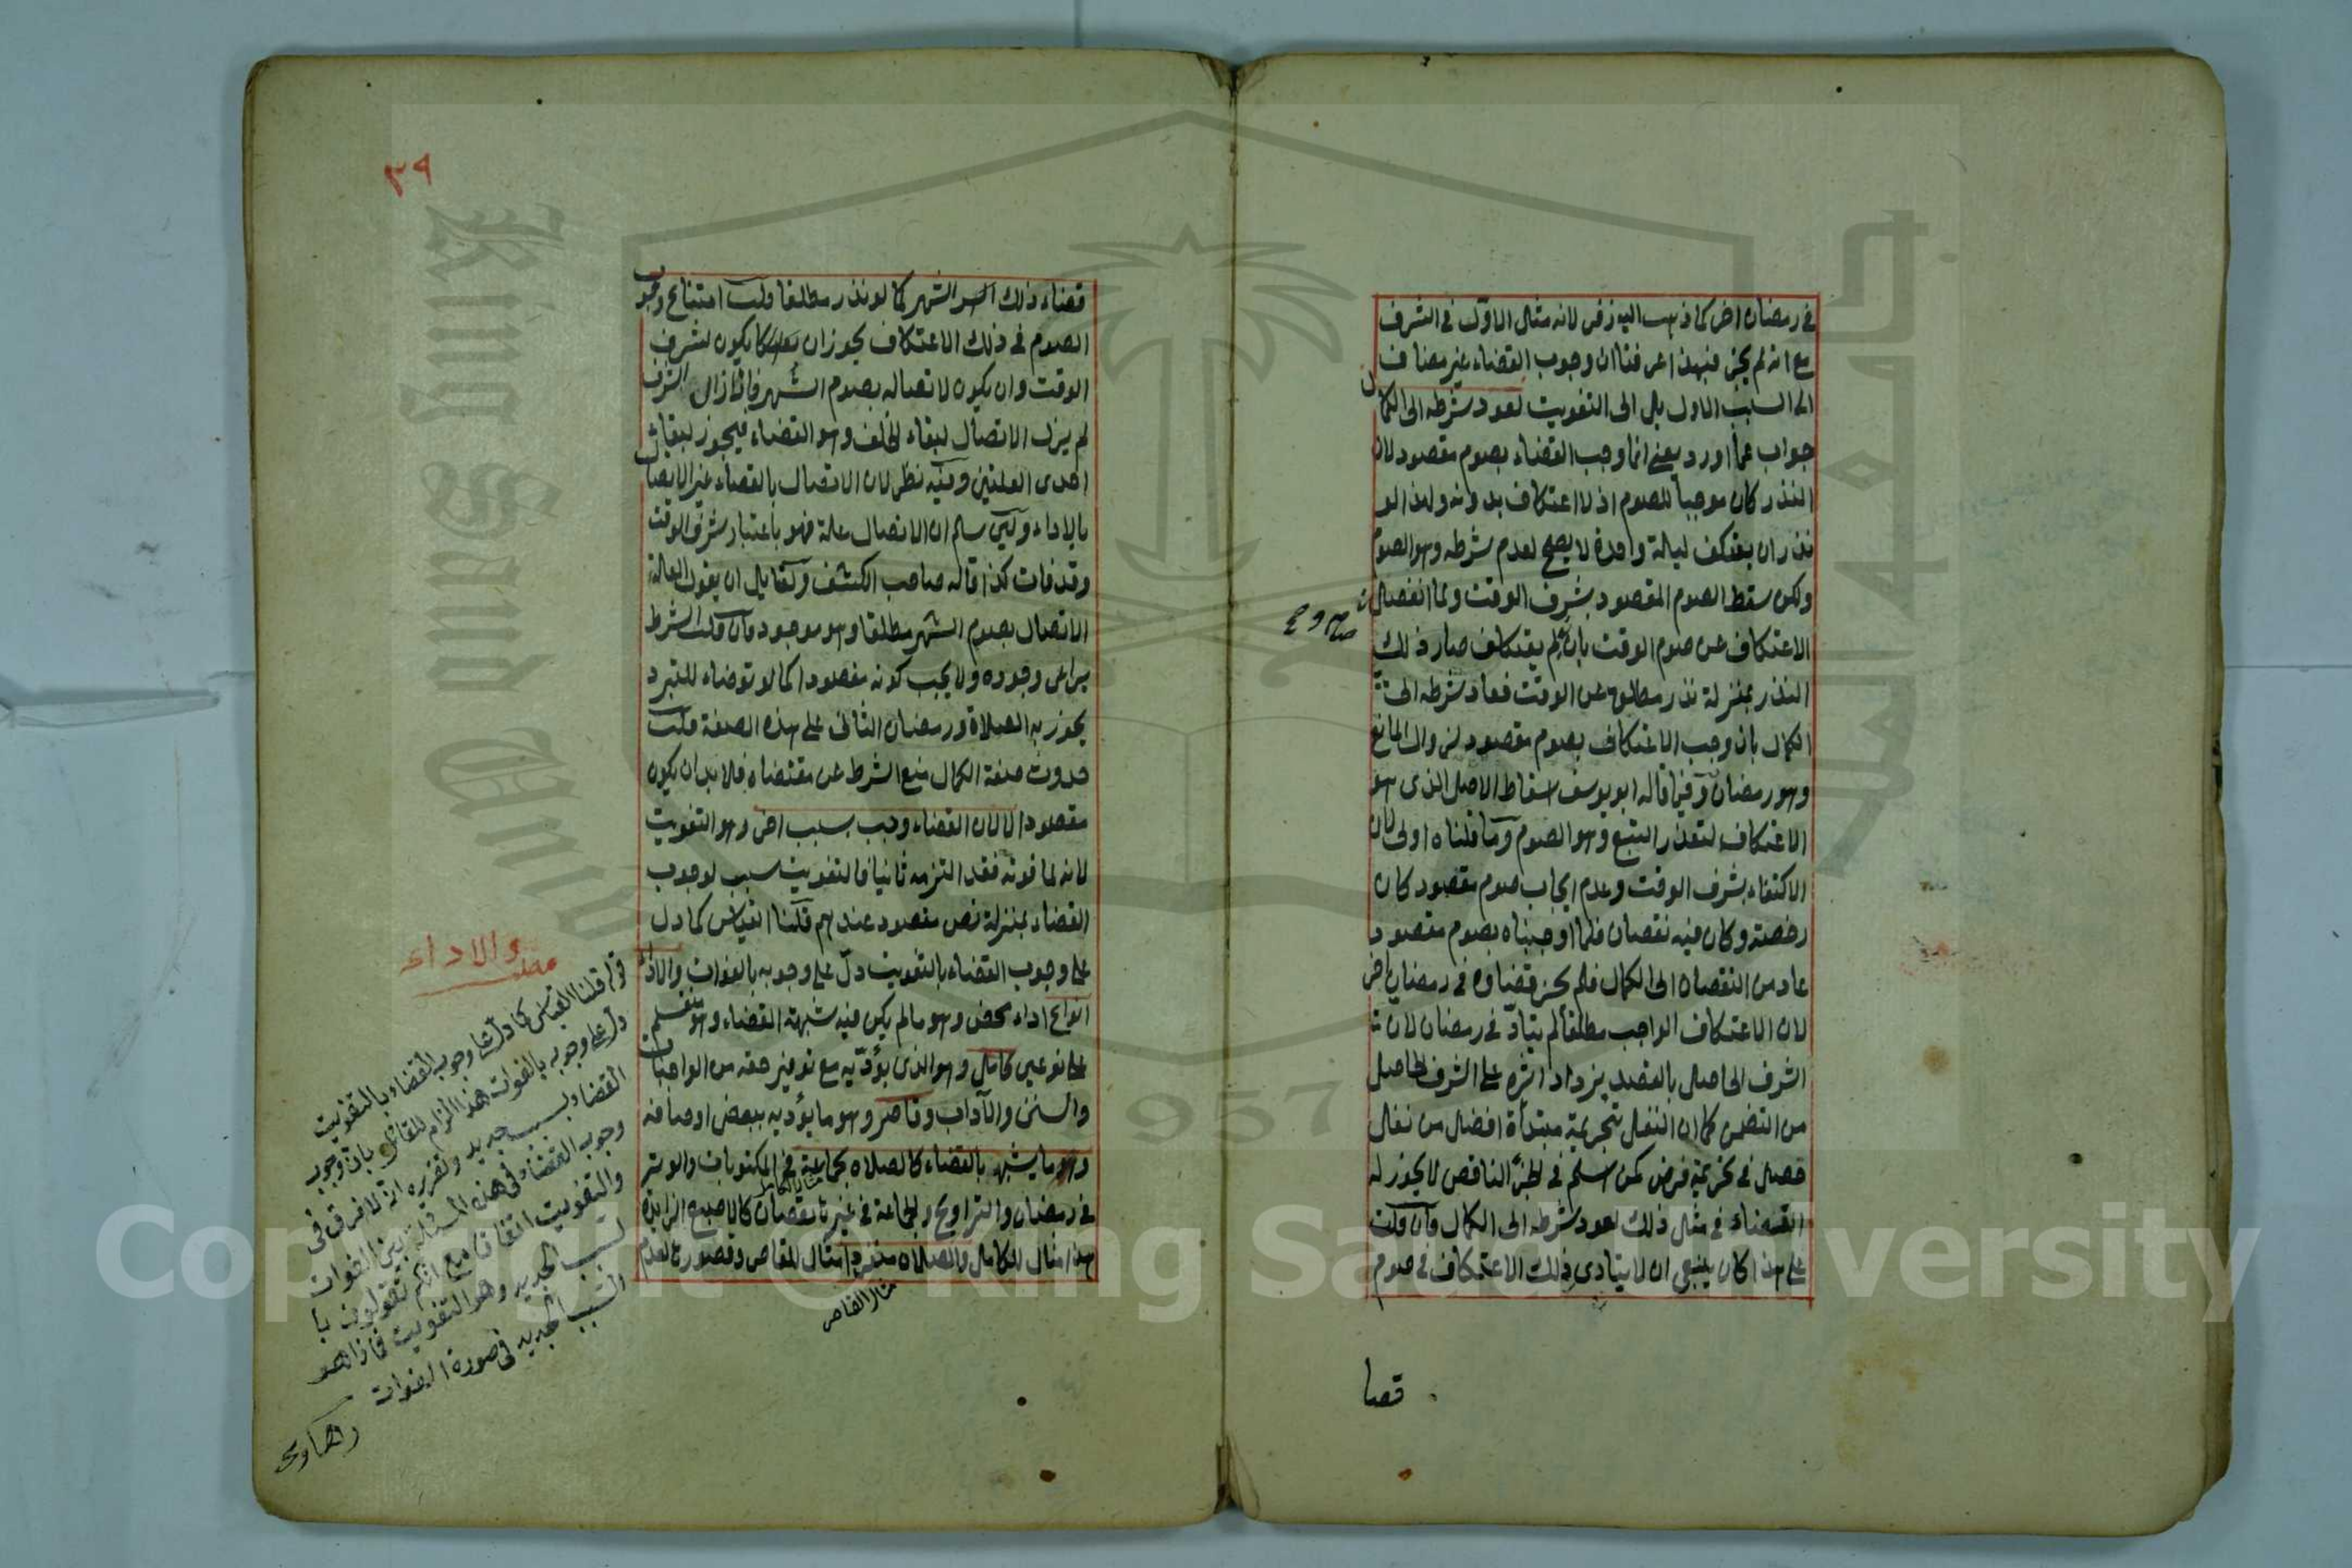 في رمضان اخر كما ذهب اليه زفر لانه مثل الاول في الشرف
مع انه لم يجز فبهذا عرفنا ان وجوب القضاء غير مضاف
الى السبب الاول بل الى التفويت لعود شرطه الى الكمال
جواب عما اورد يعني انما وجب القضاء بصوم مقصود لان
النذر كان موجبا للصوم اذ لا اعتكاف بدونه ولهذا لو
نذر ان يعتكف ليلة واحدة لا يصح لعدم شرطه وهو الصوم
ولكن سقط الصوم المقصود بشرف الوقت ولما انفصل
الاعتكاف عن صوم الوقت بان لم يعتكف صار ذلك
النذر بمنزلة نذر مطلق عن الوقت فعاد شرطه الى
الكمال بان وجب الاعتكاف بصوم مقصود لزوال المانع
وهو رمضان وفيما قاله ابو يوسف اسقاط الاصل الذي هو
الاعتكاف لتعذر التبع وهو الصوم وما قلناه اولى لان
الاكتفاء بشرف الوقت وعدم ايجاب صوم مقصود كان
رخصة وكان فيه نقصان فلما اوجبناه بصوم مقصود
عاد من النقصان الى الكمال فلم يجز قضاوه في رمضان اخر
لان الاعتكاف الواجب مطلقا لم يتاد في رمضان لان
الشرف الحاصل بالقصد يزداد اثره على الشرف الحاصل
من الضمن كما ان النفل بتحريمة مبتدأة افضل من نفل
حصل في تحريمة فرض كمن اسلم في الجزء الناقص لا يجوز له
القضاء في مثل ذلك لعود شرطه الى الكمال وان قلت
على هذا كان ينبغي ان لا يتادى ذلك الاعتكاف في صوم
قضا
٣٩
قضاء ذلك الشهر كما لو نذر مطلقا قلت امتناع وجوب
الصوم في ذلك الاعتكاف يجوز ان يكون لشرف
الوقت وان يكون لاتصاله بصوم الشهر فان زال الشرف
لم يزل الاتصال لبقاء الخلف وهو القضاء فيجوز لبقاء
احدى العلتين وفيه نظر لان الاتصال بالقضاء غير الاتصال
بالاداء ولئن سلم ان الاتصال علة فهو باعتبار شرف الوقت
وقد فات كذا قاله صاحب الكشف ولقايل ان يقول العلة
الاتصال بصوم الشهر مطلقا وهو موجود فان قلت الشرط
يراعى وجوده ولا يجب كونه مقصودا كما لو توضاء للتبرد
يجوز به الصلاة ورمضان الثاني على هذه الصفة قلت
حدوث صفة الكمال منع الشرط عن مقتضاه فلا بد ان يكون
مقصودا لا لان القضاء وجب بسبب اخر وهو التفويت
لانه لما فوته فقد التزمه ثانيا فالتفويت سبب لوجوب
القضاء بمنزلة نص مقصود عندهم قلنا القياس كما دل
على وجوب القضاء بالتفويت دل على وجوبه بالفوات والاداء
انواع اداء محض وهو ما لم يكن فيه شبهة القضاء وهو منقسم
على نوعين كامل وهو الذي يؤديه مع توفير حقه من الواجبات
والسنن والآداب وقاصر وهو ما يؤديه ببعض اوصافه
وما يشبه بالقضاء كالصلاة بجماعة في المكتوبات والوتر
في رمضان والتراويح والجماعة في غيرها نقصان كالاصبع الزايدة
هذا مثال للكامل والصلاة منفردا مثال للقاصر وقصورها لعدم
مثال القاصر
والاداء
مطلب
قوله قلنا القياس كما دل على وجوب القضاء بالتفويت
دل على وجوبه بالفوات هذا الزام للقائل بان وجوب
القضاء بسبب جديد وتقريره انه لا فرق في
وجوب القضاء في هذه المسئلة بين الفوات
والتفويت اتفاقا مع انكم تقولون با
لسبب الجديد وهو التفويت فماذا هو
السبب الجديد في صورة الفوات
رهاوي
Copyright © King Saud University
1957